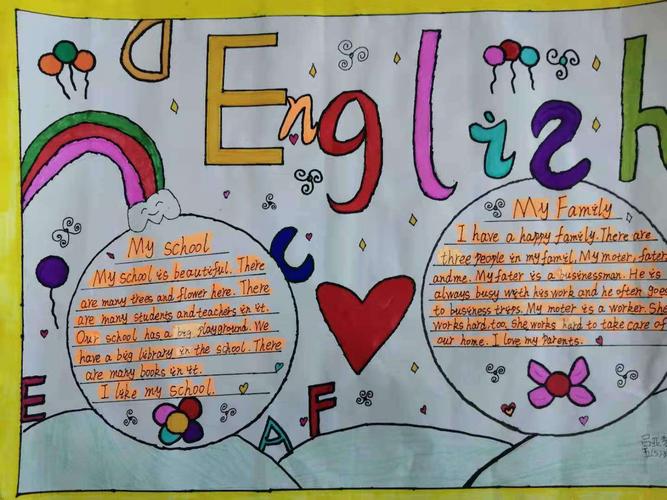 English
My school
My school is beautiful. There
are many trees and flower here. There
are many students and teachers in it.
Our school has a big playground. We
have a big library in the school. There
are many books in it.
I like my school.
My Family
I have a happy family. There are
three people in my family. My moter, fater
and me. My fater is a businessman. He is
always busy with his work and he often goes
to business trips. My moter is a worker. She
works hard, too. She works hard to take care of
our home. I love my parents.
C
E
A
F